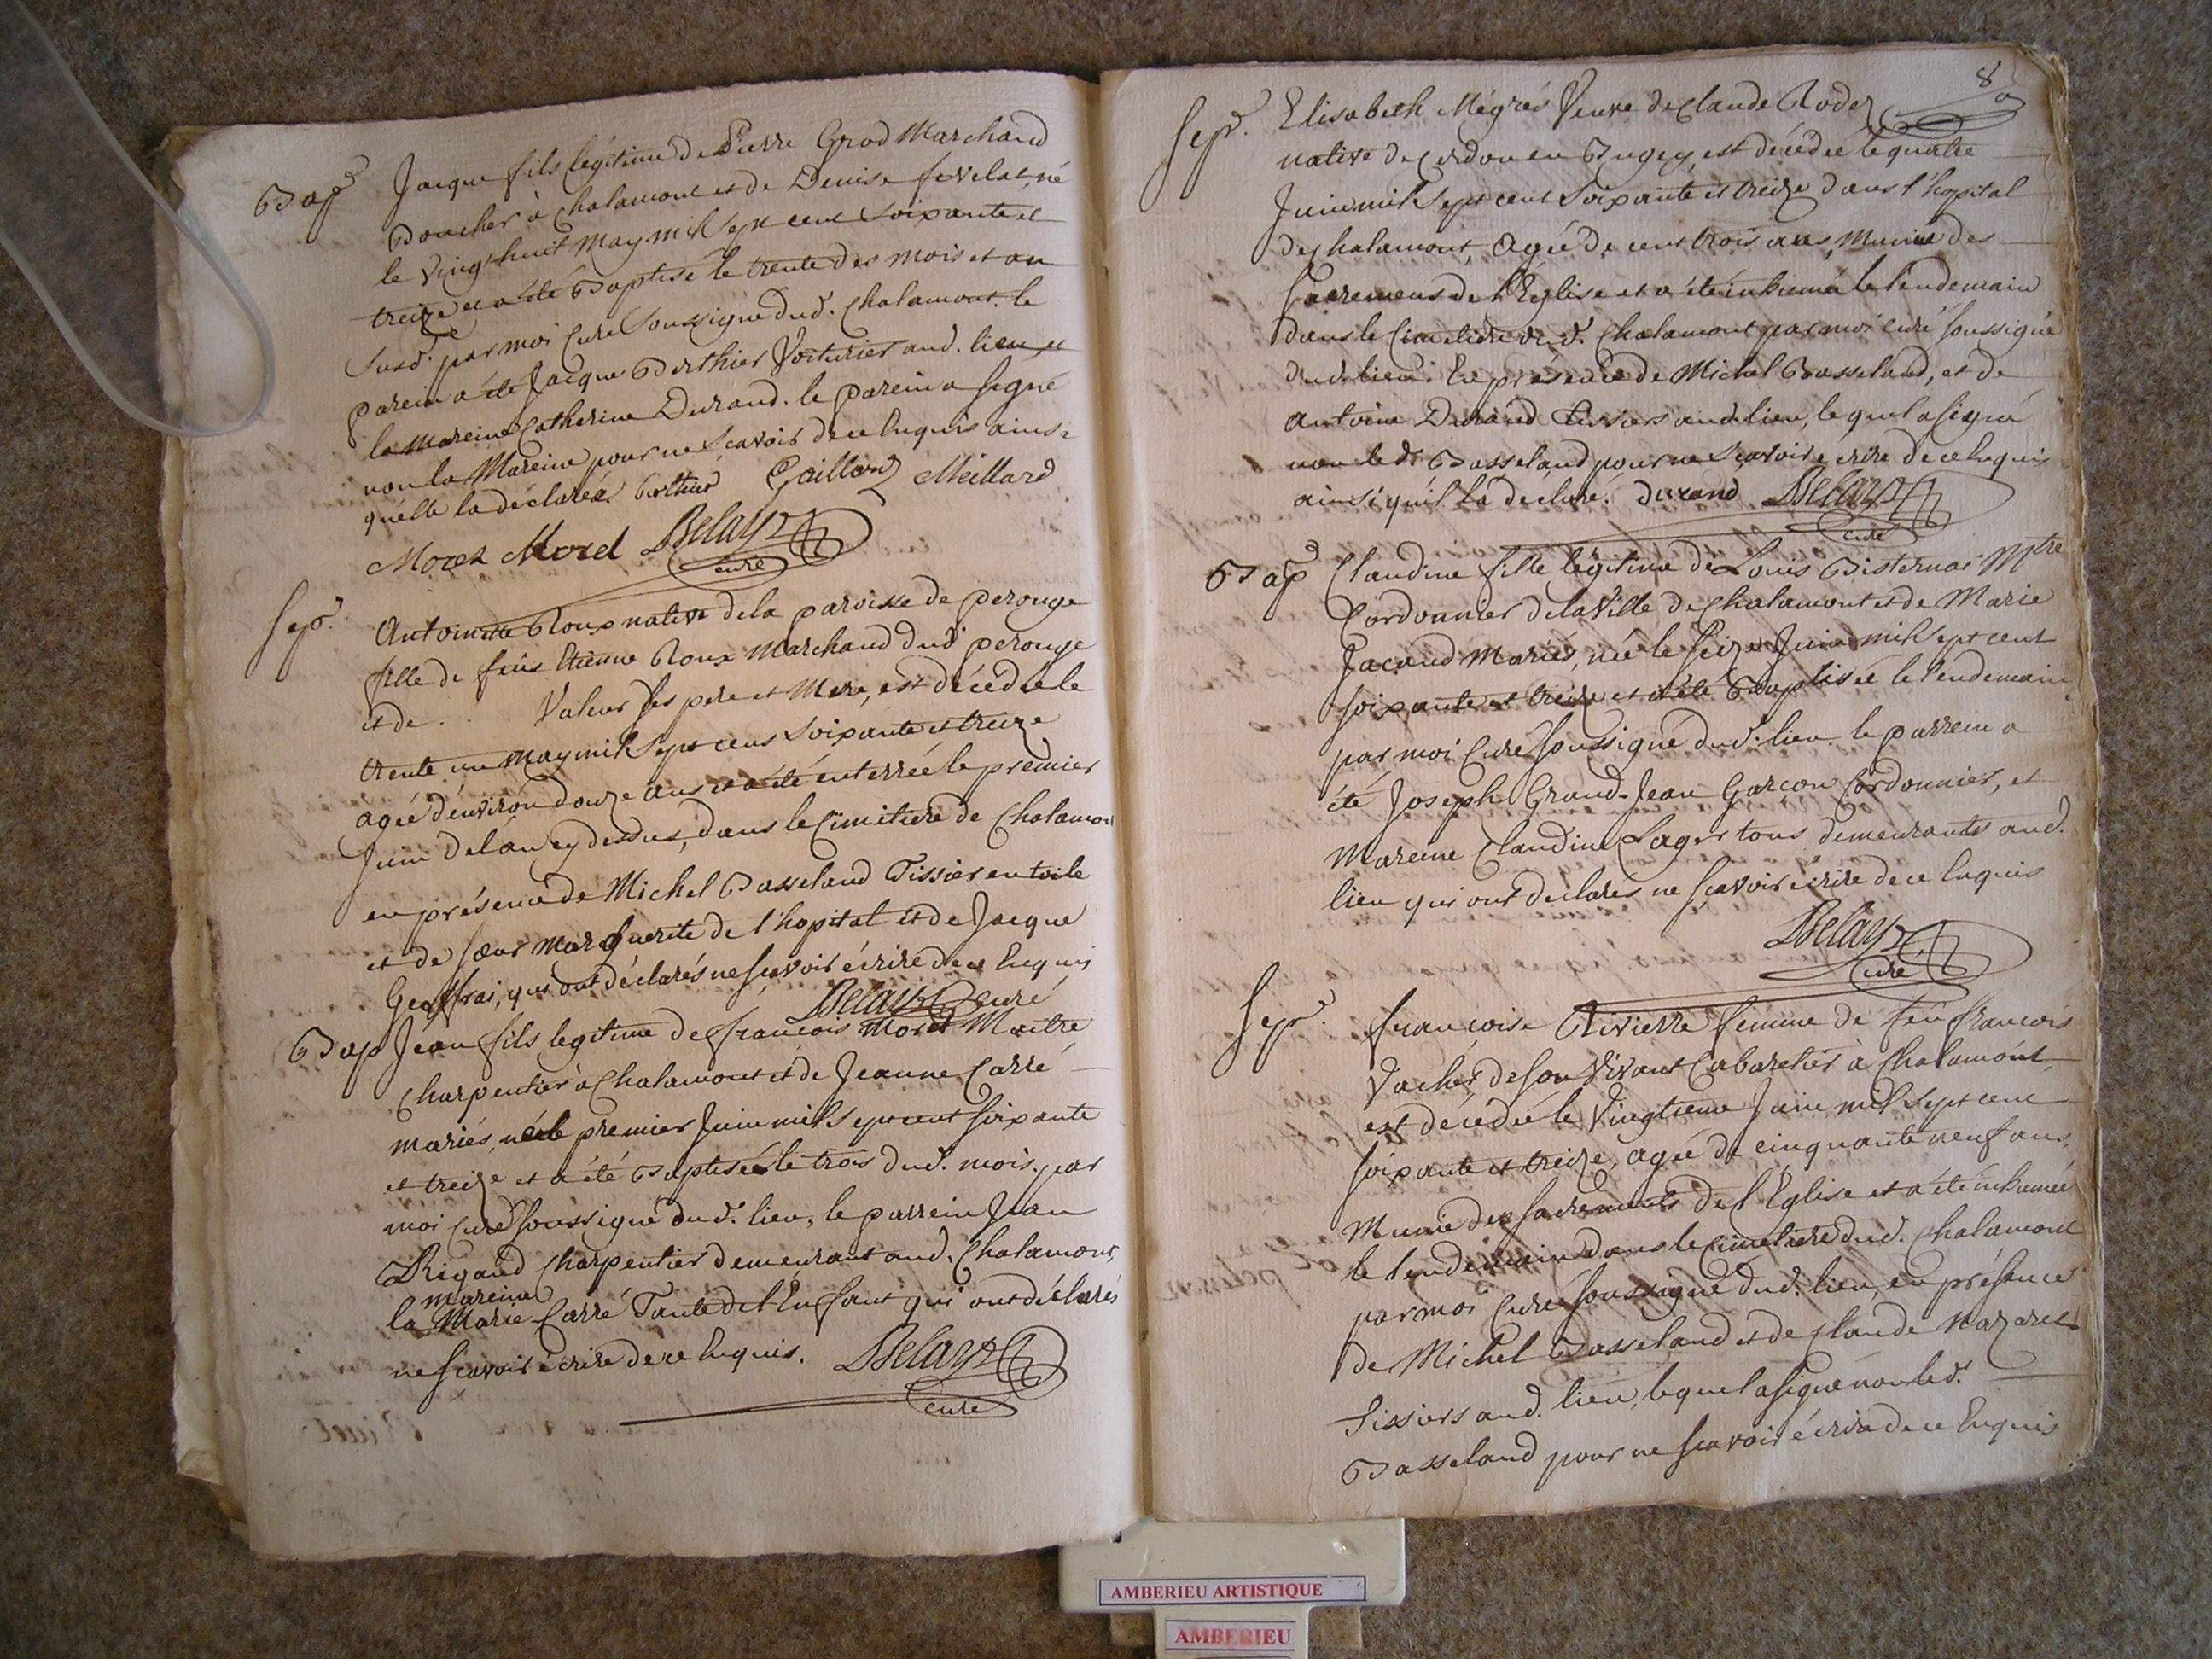 Bap.e Jacque fils légitime de Pierre Grod Marchand
Boucher à Chalamont et de Denise fevelat, né
le vingthuit may mil sept cent soixante et
treize et a été Baptisé le trente des mois et an
susd. par moi Curé soussigné dud. Chalamont. le
parein a été Jacque Berthier Voiturier aud. lieu et
la mareine Catherine Durand. le parein a signé
non la Mareine pour ne scavoir de ce Enquis ainsi
qu'elle la déclarée. Berthier Gaillard Meillard
Morel Morel Belay
curé
Sep.e Antoinette Roux native de la paroisse de perouge
fille de feûs Etienne Roux Marchand dud perouge
et de . . Valeur ses pere et Mere, est décédée le
trente un may mil sept cens soixante et treize
agée d'environ douze ans et a été enterrée le premier
Juin de l'an cy dessus, dans le Cimitiere de Chalamon
en présence de Michel Basseland Tissier en toile
et de sœur marguerite de l'hopital et de Jacque
Geoffrai, qui ont déclarés ne scavoir écrire de ce Enquis
Belay curé
Bap Jean fils legitime de françois Morel Maitre
Charpentier à Chalamont et de Jeanne Carré
mariés, né le premier Juin mil sept cent soixante
et treize et a été Baptisé le trois dud. mois. par
moi curé soussigné dud. lieu, le parrein Jean
Rigaud Charpentier demeurant aud. Chalamont,
mareine
la Marie Carré Tante de l'Enfant qui ont déclarés
ne scavoir écrire de ce Enquis. Belay
curé
8
Sep.e Elisabeth Mégrés Veuve de Claude Rodet
native de Cerdon en Bugey, est décédée le quatre
Juin mil sept cent soixante et treize dans l'hopital
de Chalamont, agée de cent trois ans, munie des
sacremens de l'Eglise et a été inhumé le lendemain
dans le Cimetiere dud. Chalamont par moi curé soussigné
dud. lieu. En présence de Michel Basseland, et de
Antoine Durand tissiers aud. lieu, lequel a signé
non le d. Basseland pour ne scavoir ecrire de ce Enquis
ainsi qu'il l'a declaré. durand Belay
curé
Bap.e Claudine fille légitime de Louis Bisternai Mtre
Cordonnier de la Ville de Chalamont et de Marie
Jacaud mariés, née le seize Juin mil sept cent
soixante et treize et a été Baptisée le lendemain
par moi Curé soussigné dud. lieu. le parrein a
été Joseph Grand-Jean Garcon Cordonnier, et
mareine Claudine Lager tous demeurants aud.
lieu qui ont declarés ne scavoir écrire de ce Enquis
Belay
curé
Sep.e francoise Rivierre femme de feû francois
Vacher de son vivant Cabaretier à Chalamont,
est décédée le vingtieme Juin mil sept cent
soixante et treize, agée de cinquante neuf ans,
Munie des sacrements de l'Eglise et a été inhumée
le lendemain dans le Cimetiere dud. Chalamont
par moi curé soussigné dud. lieu, en présence
de Michel Basseland et de Claude Nazaret
tissiers aud. lieu, lequel a signé non led.
Basseland pour ne scavoir écrire de ce Enquis
AMBERIEU ARTISTIQUE
AMBERIEU